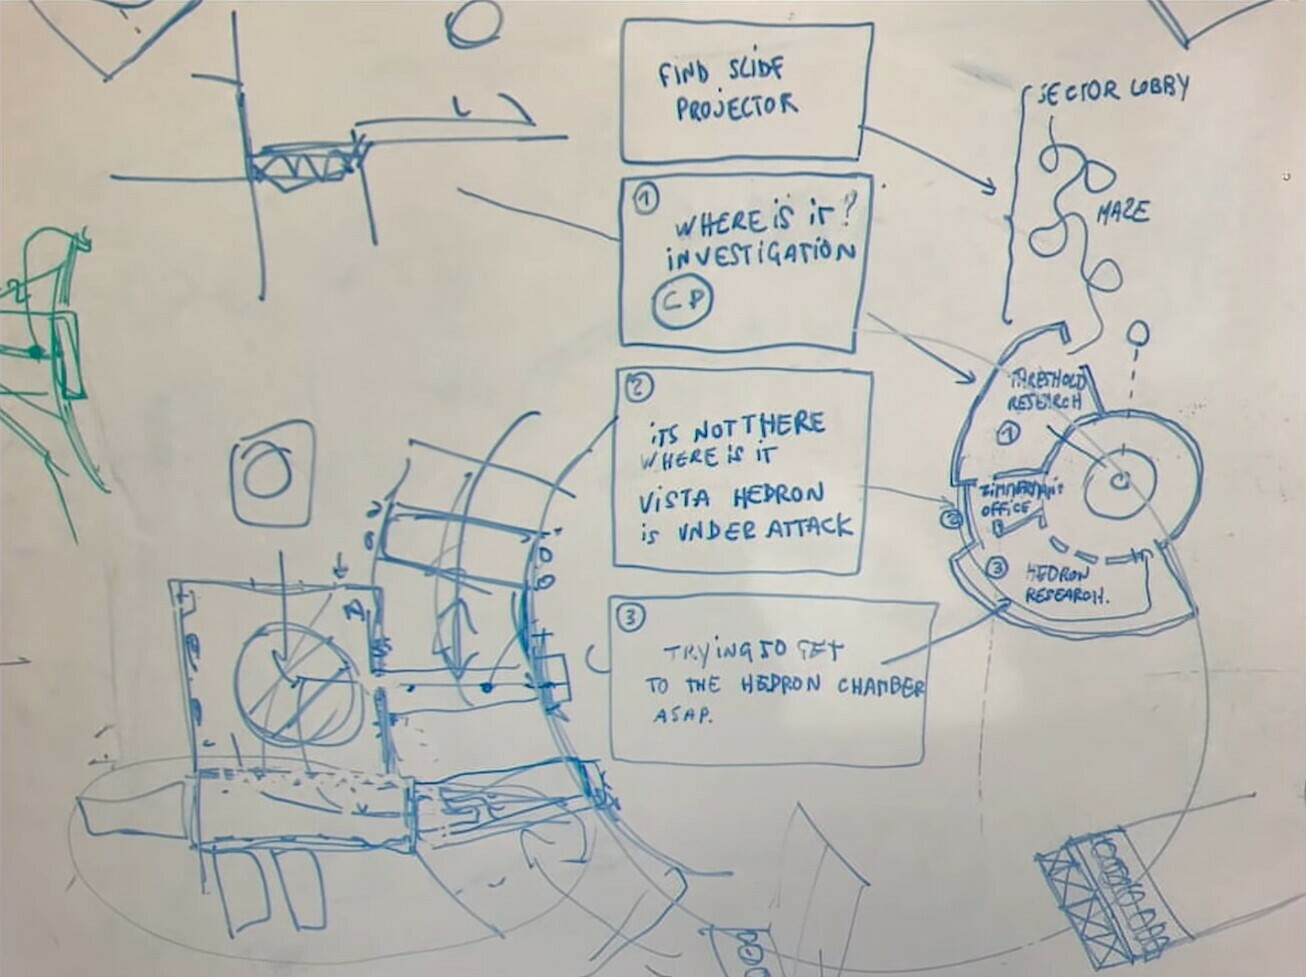 FIND SLIDE
PROJECTOR
1
WHERE IS IT?
INVESTIGATION
CP
2
ITS NOT THERE
WHERE IS IT
VISTA HEDRON
IS UNDER ATTACK
3
TRYING TO GET
TO THE HEDRON CHAMBER
ASAP.
SECTOR LOBBY
MAZE
THRESHOLD
RESEARCH
1
OFFICE
2
3
HEDRON
RESEARCH.